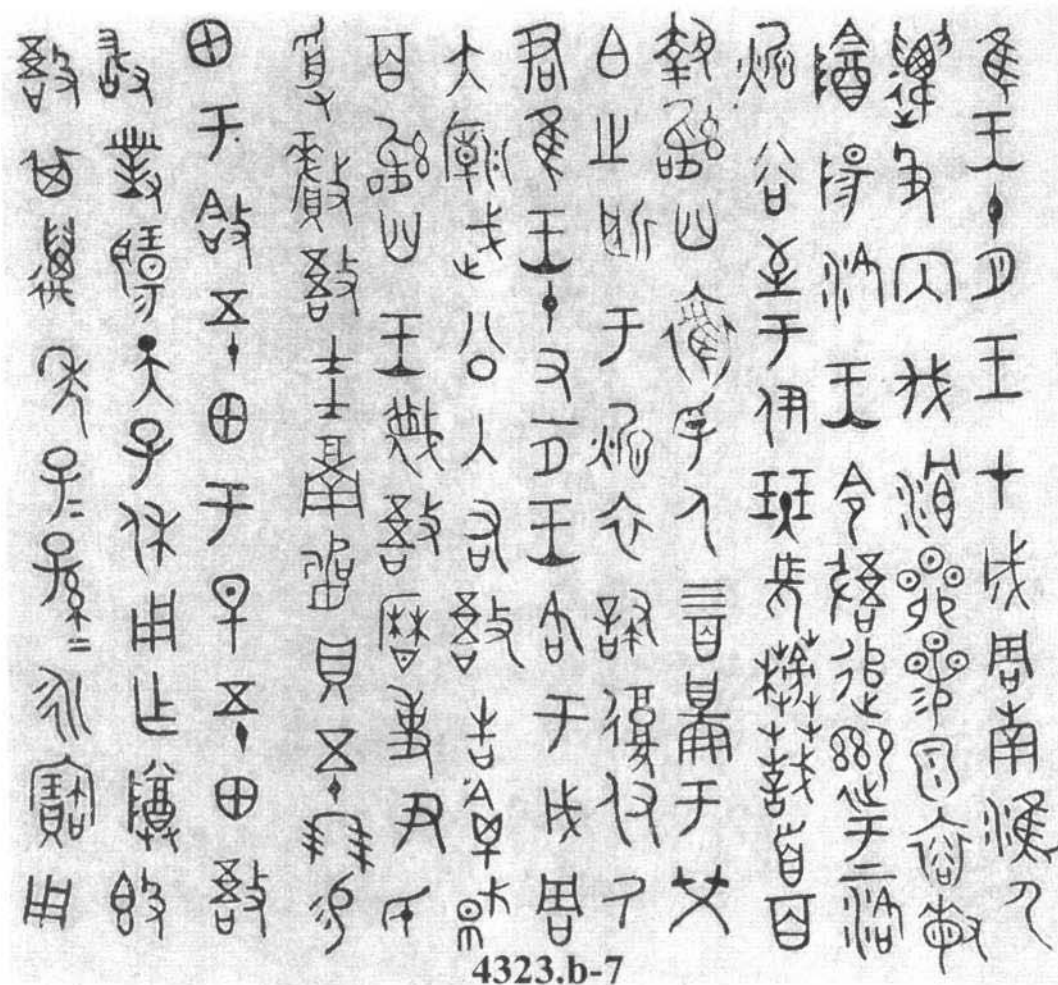 隹王十月王才成周南淮尸
遷殳內伐洀昴參泉裕敏
陰陽洛王令敔追御于上洛
㶷谷至于伊班長榜蕺首百
執訊卌奪孚人四百啚于榮
白之所于㶷衣諱復付氒
君隹王十又一月王各于成周
大廟武公入右敔告禽馘
百訊卌王蔑敔曆事尹氏
受釐敔圭瓚貝五十朋易
田于敆五十田于早五十田敔
敢對揚天子休用乍尊簋
敔其萬年子=孫=永寶用
4323.b-7